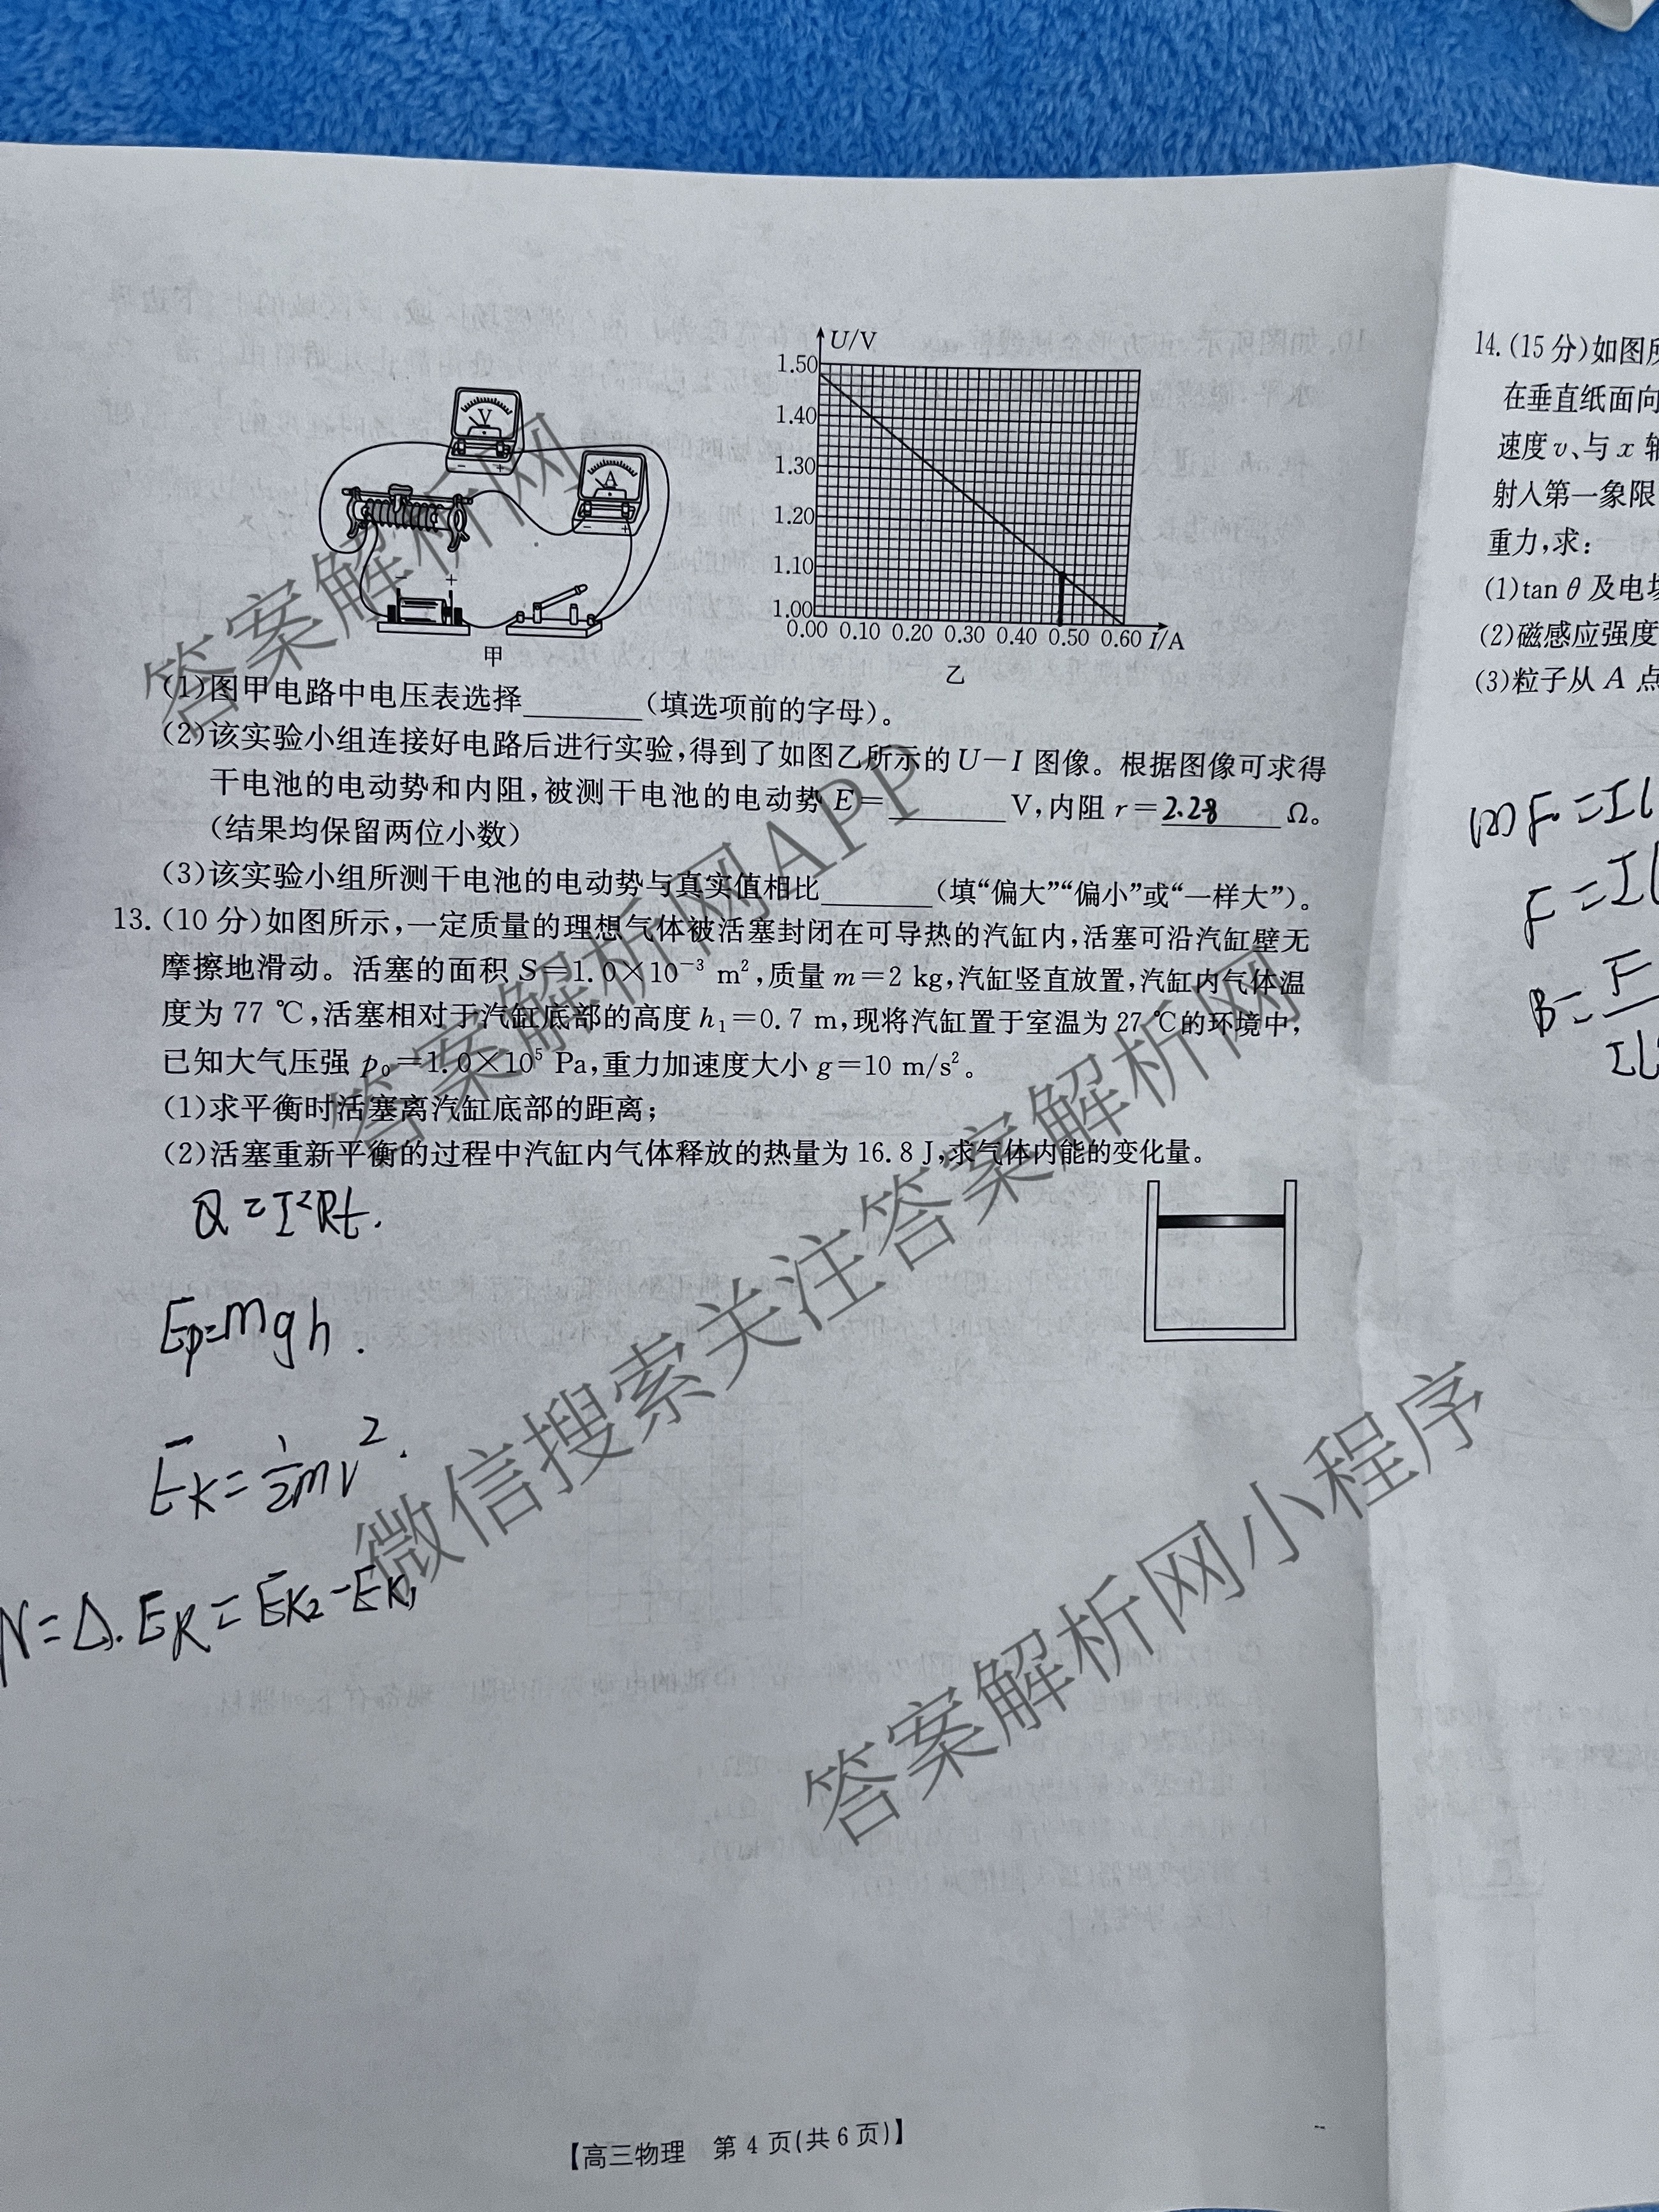 U/V
1.50
1.40
1.30
1.20
1.10
1.00
0.00 0.10 0.20 0.30 0.40 0.50 0.60 I/A
V
A
甲
乙
(1)图甲电路中电压表选择________(填选项前的字母)。
(2)该实验小组连接好电路后进行实验,得到了如图乙所示的U－I图像。根据图像可求得
干电池的电动势和内阻,被测干电池的电动势E=________V,内阻r=2.28Ω。
(结果均保留两位小数)
(3)该实验小组所测干电池的电动势与真实值相比________(填“偏大”“偏小”或“一样大”)。
13.(10分)如图所示,一定质量的理想气体被活塞封闭在可导热的汽缸内,活塞可沿汽缸壁无
摩擦地滑动。活塞的面积S=1.0×10⁻³ m²,质量m=2 kg,汽缸竖直放置,汽缸内气体温
度为77 ℃,活塞相对于汽缸底部的高度h₁=0.7 m,现将汽缸置于室温为27 ℃的环境中,
已知大气压强p₀=1.0×10⁵ Pa,重力加速度大小g=10 m/s²。
(1)求平衡时活塞离汽缸底部的距离;
(2)活塞重新平衡的过程中汽缸内气体释放的热量为16.8 J,求气体内能的变化量。
Q=I²Rt.
Ep=mgh.
Ek=½mv².
=Δ.EK=EK₂-EK₁
【高三物理 第4页(共6页)】
14.(15分)如图所
在垂直纸面向
速度v、与x轴
射入第一象限
重力,求:
(1)tan θ及电场
(2)磁感应强度
(3)粒子从A点
(2)F=IL
F=IL
B=F
IL
答案解析网
答案解析网APP
微信搜索关注答案解析网
答案解析网小程序